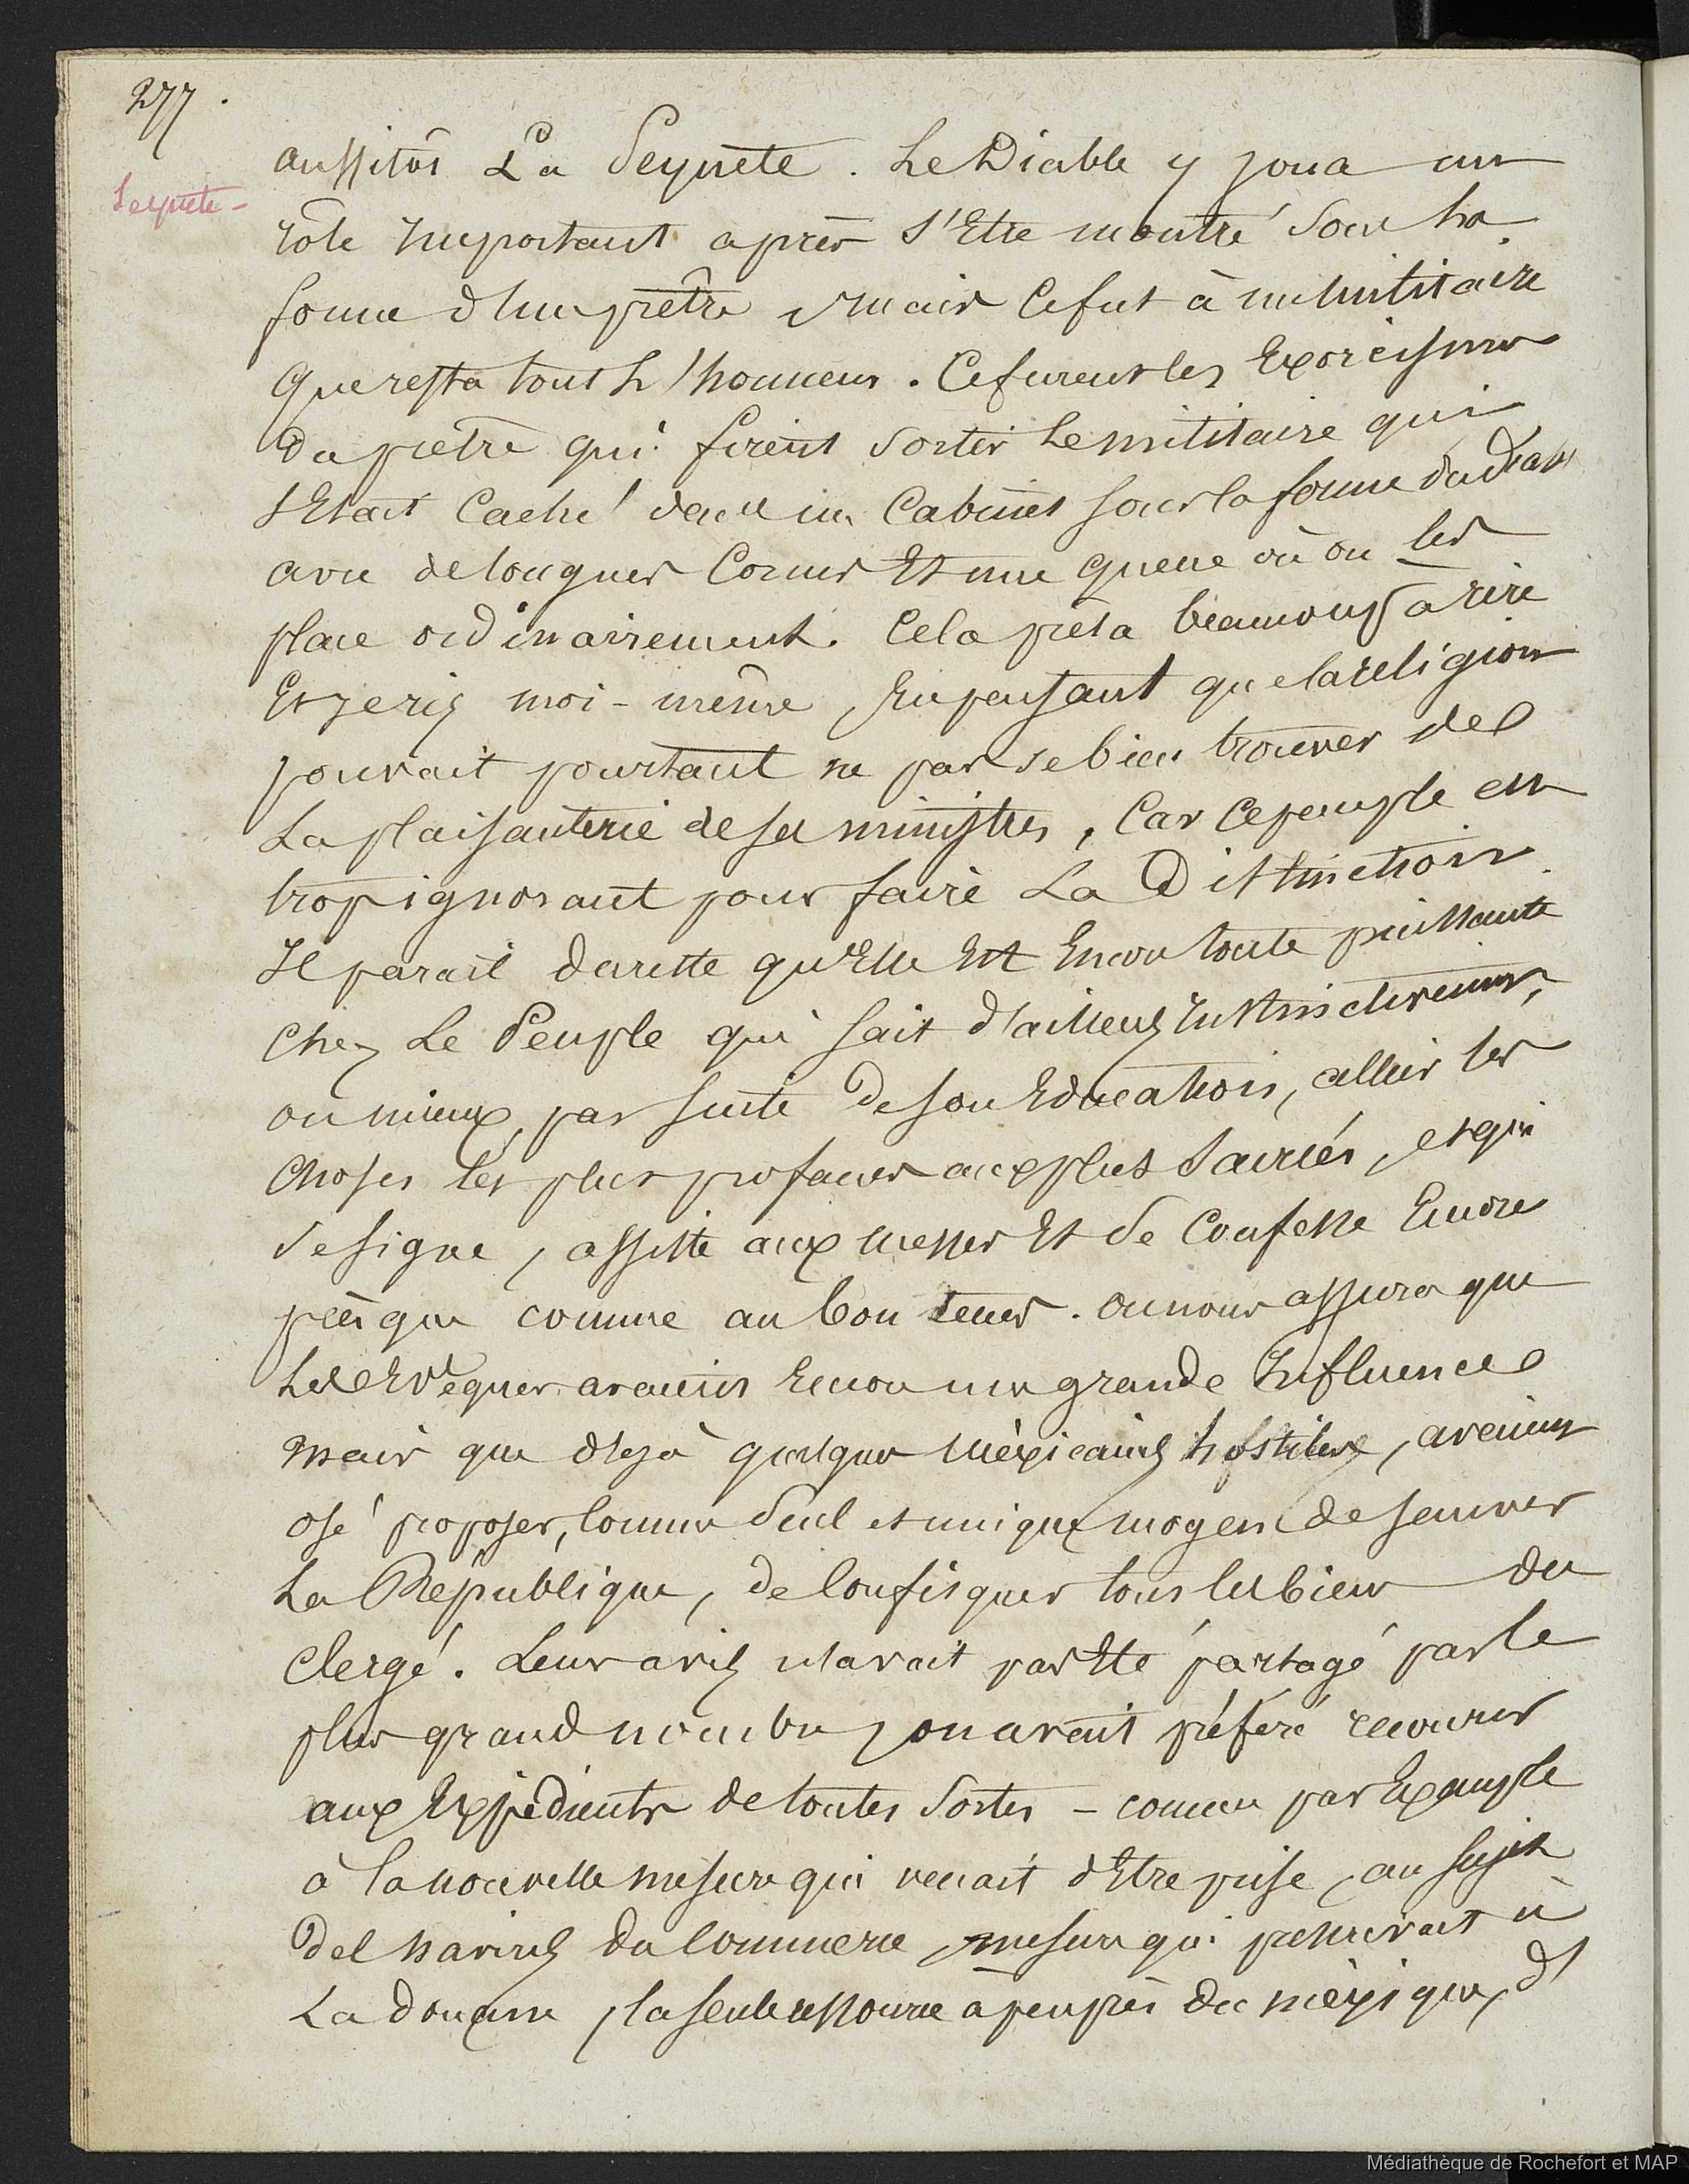 277.
Seynete -
aussitôt La Seynete. Le Diable y joua un
rôle Important après s'Etre montré sous la
forme d'un prêtre, mais Ce fut à un militaire
que resta tout L'honneur. Ce furent les Exorcismes
du prêtre qui firent sortir Le militaire qui
s'Etait Caché dans un Cabinet sous la forme du
avec de longues Cornes Et une queue où on les
place ordinairement. Cela prêta beaucoup à rire
Et je ris moi-même, En pensant que la religion
pouvait pourtant ne pas se bien trouver de
La plaisanterie de ses ministres, Car Ce peuple est
trop ignorant pour faire La Distinction.
Il parait du reste qu'Elle Est Encore toute puissante
chez Le Peuple qui sait d'ailleurs Instinctivement,
ou mieux, par suite de son Education, allier les
Choses les plus profanes aux plus Sacrées, et qui
se signe, assiste aux messes Et se Confesse Encore
presque comme au bon tems. on nous assura que
Les Evêques avaient Encore une grande Influence
mais que déjà quelques Méxicains hostiles, avaient
osé proposer, Comme Seul et unique moyen de sauver
La République, de Confisquer tous les biens du
Clergé. Leur avis n'avait pas Eté partagé par le
plus grand nombre, on avait préféré recourir
aux Expédients de toutes Sortes - comme par Exemple
à la nouvelle mesure qui venait d'Etre prise, au sujet
des navires du Commerce, mesure qui permîrait à
La douane, la seule ressource à peu près du méxique, d'
Médiathèque de Rochefort et MAP